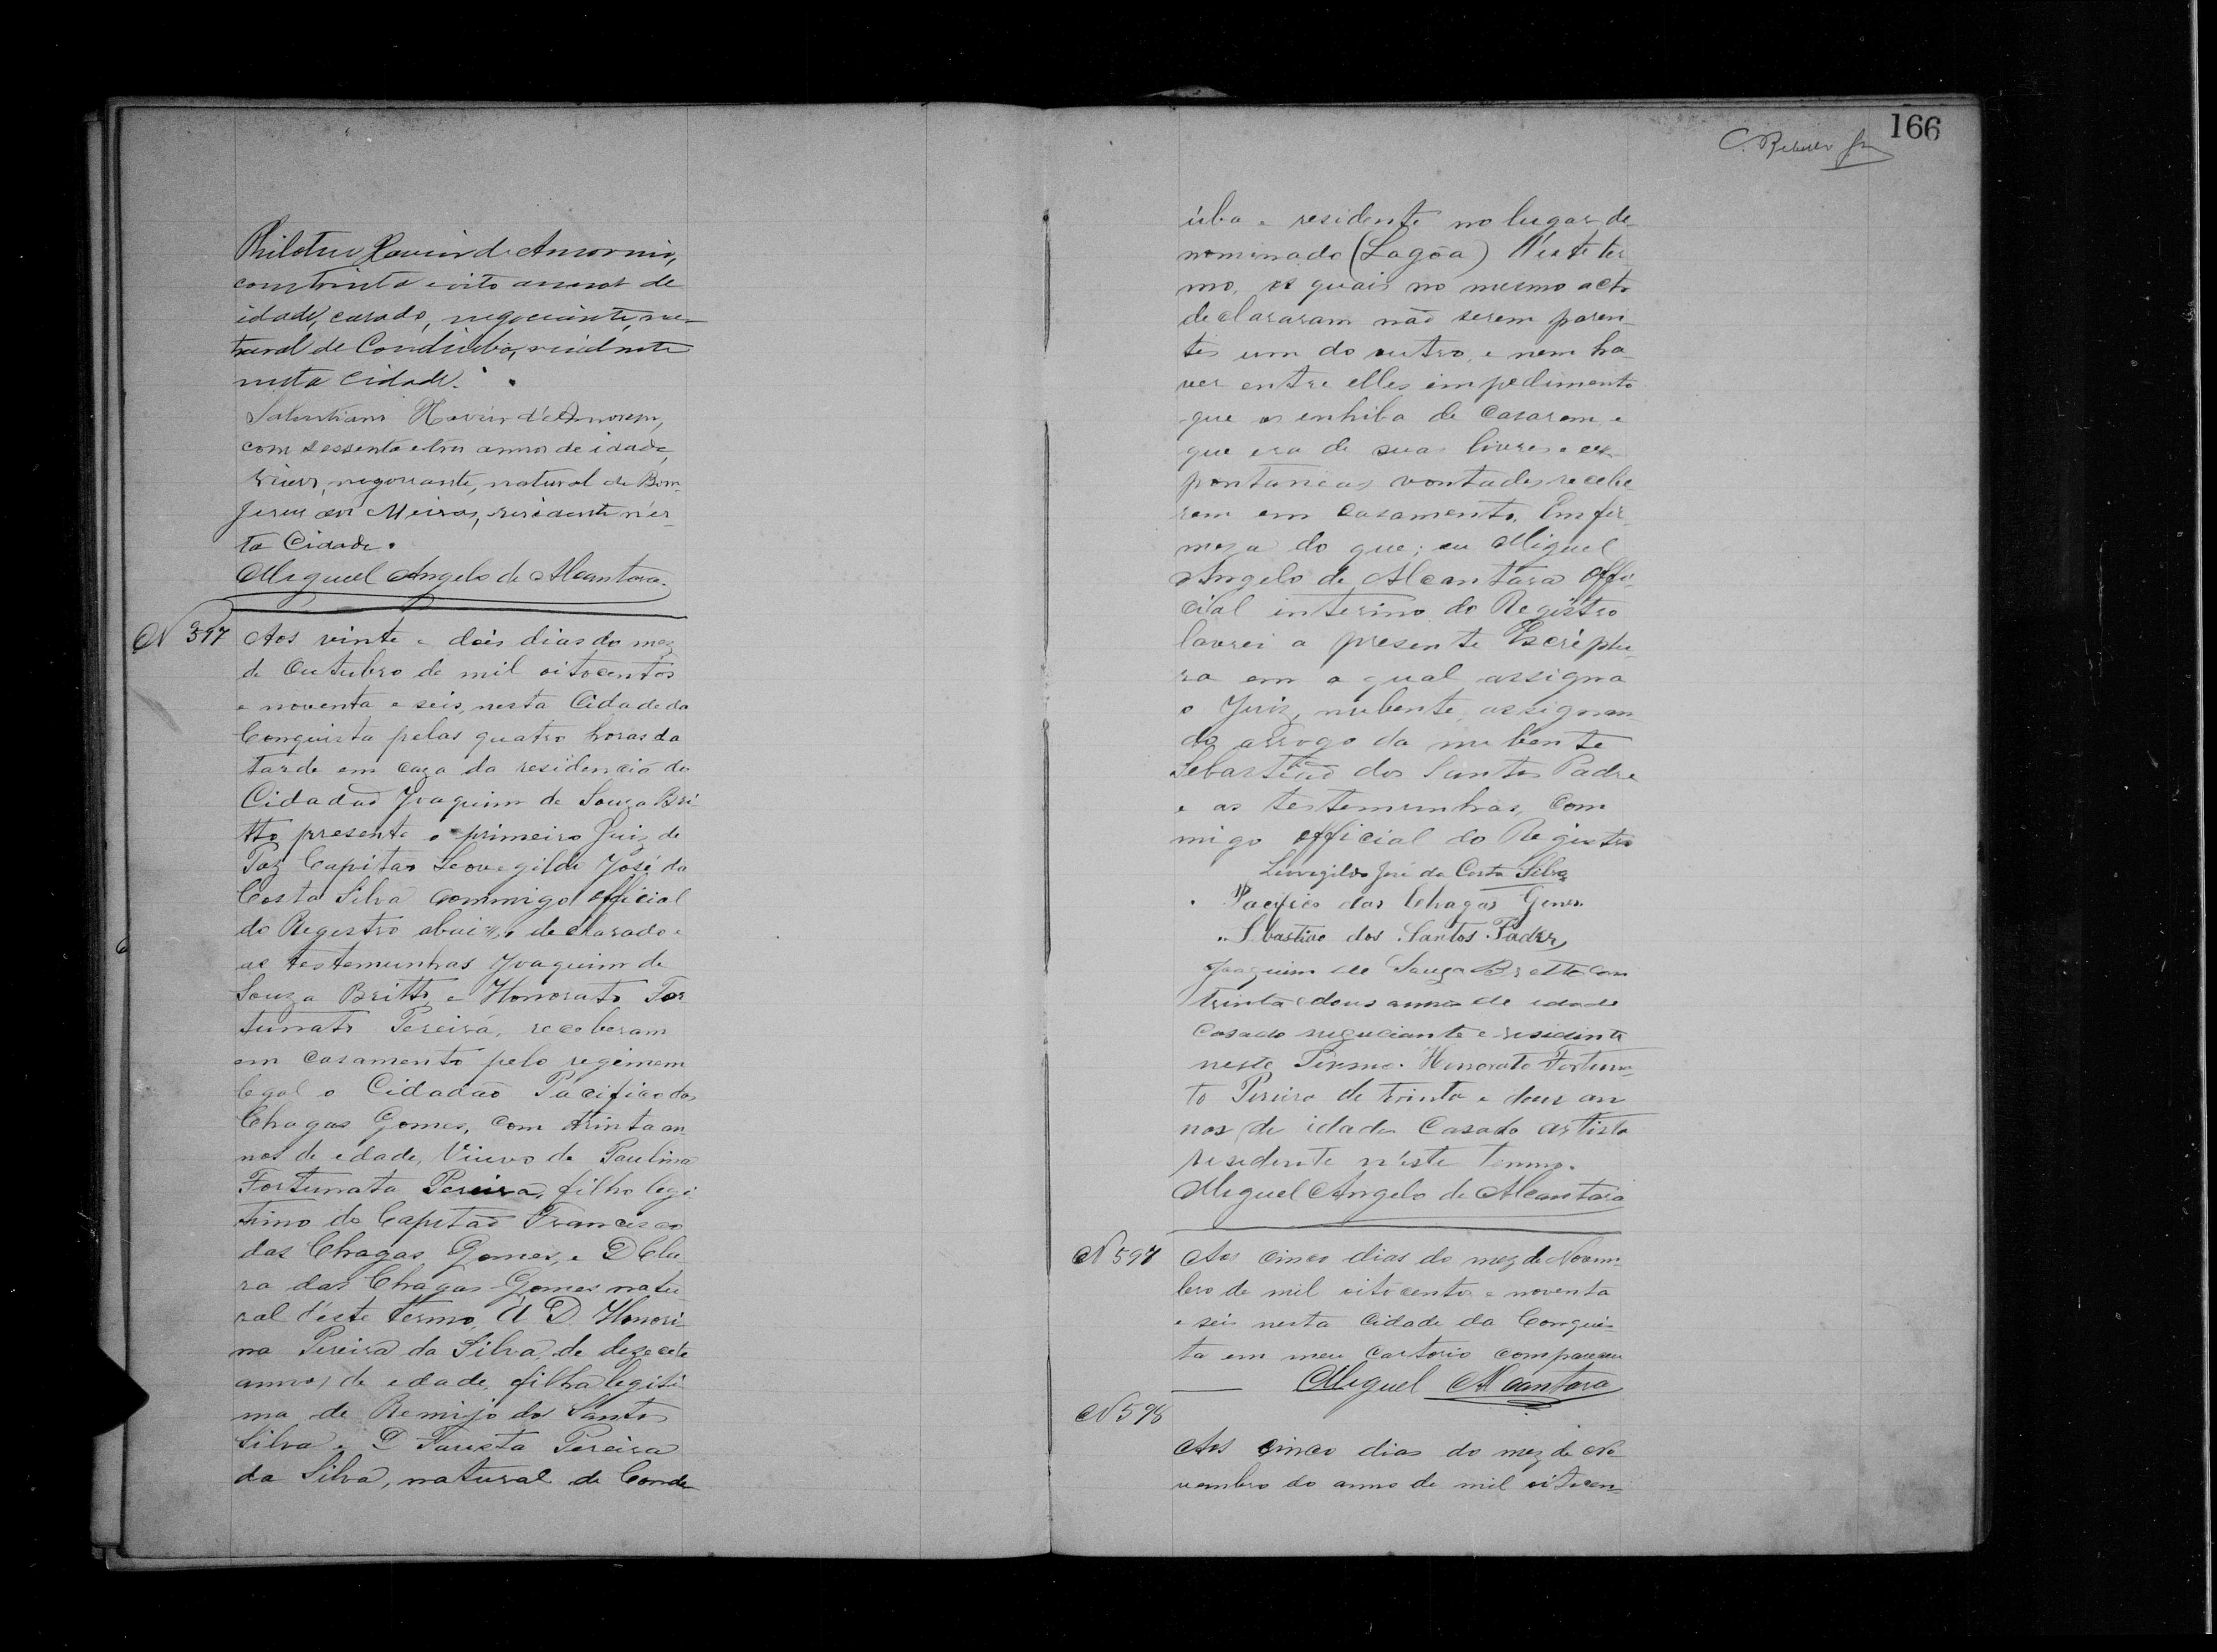 166
com trinta e oito annos de
idade, casado, negociante, na-
tural de Condeúba, residente
nesta cidade.
Salustiano Xavier d'Amorem,
com sessenta e tres annos de idade,
viuvo, negociante, natural de Bom
Jesus dos Meiras, residente n'es-
ta Cidade.
Miguel Angelo de Alcantara.
N 597 Aos vinte e dois dias do mez
de Outubro de mil oitocentos
e noventa e seis, nesta Cidade da
Conquista pelas quatro horas da
tarde em caza da residencia do
Cidadão Joaquim de Souza Bri
tto, presente o primeiro Juiz de
Paz Capitão Leovegildo José da
Costa Silva commigo official
do Registro abaixo declarado e
as testemunhas Joaquim de
Souza Britto, e Honorato For
tunato Pereira, receberam
em casamento pelo regimem
legal o Cidadão Pacifico das
Chagas Gomes, com trinta an
nos de edade, Viuvo de Paulina
Fortunata Pereira, filho legi
timo do Capitão Francisco
das Chagas Gomes, e D Cla
ra das Chagas Gomes natu
ral d'este termo, á D. Honori
na Pereira da Silva, de dezecete
annos de edade, filha legiti
ma de Remijo dos Santos
Silva e D Fausta Pereira
da Silva, natural de Conde
úba e residente no lugar de
nominado (Lagôa) N'este ter
mo, os quais no mesmo acto
declararam não serem paren
tes um do outro, e nem ha
ver entre elles impedimento
que os enhiba de Casarem, e
que era de suas livres e ex
pontaneas vontades recebe
rem em Casamento. Em fir
meza do que; eu Miguel
Angelo de Alcantara Offi
cial interino do Registro
lavrei a presente Escriptu
ra em a qual assigna
o Juiz, nubente, assignan
do arrogo da nubente
Sebastião dos Santos Padre
e as testemunhas, com
migo official do Registro
Leovegildo José da Costa Silva
Pacifico das Chagas Gomes
Sbastiao dos Santos Padre,
Joaquim de Souza Britto Com
trinta e dous annos de edade
Casado negociante e residente
neste Termo. Honorato Fortuna
to Pereira de trinta e dous an
nos de idade Casado artista
residente n'este termo.
Miguel Angelo de Alcantara
N 597 Aos cinco dias do mez de Novem-
bro de mil oitocentos e noventa
e seis nesta Cidade da Conquis
ta em meu Cartorio compareceu
Miguel Alcantara
N 598
Aos cinco dias do mez de No
vembro do anno de mil oitocen-